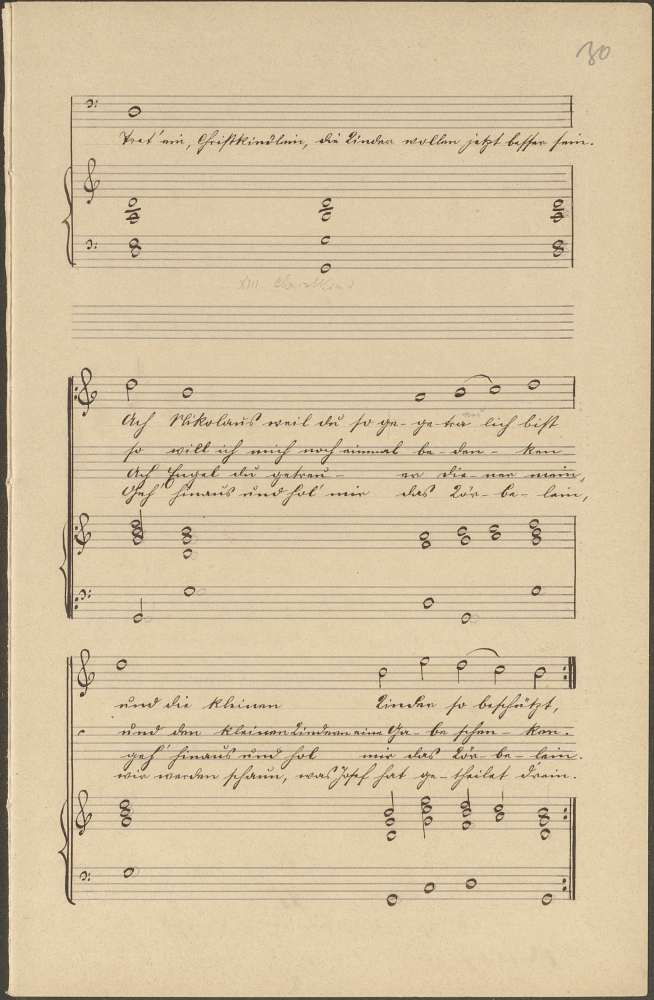 30
Tret' ein, Christkindlein, die Kinder wollen jetzt besser sein.
XIII. Christkind
Ach Nikolaus weil du so ge- ge-tra lich bist
so will ich mich noch einmal be- den- ken
Ach Engel du getreu- er Die- ner mein,
Geh' hinaus und hol' mir das Kör- be- lein,
und die kleinen Kinder so beschützt,
und den kleinen Kindern eine Ga- be schen- ken.
geh' hinaus und hol mir das Kör- be- lein.
wir werden schaun, was Josef hat ge- theilet drein.